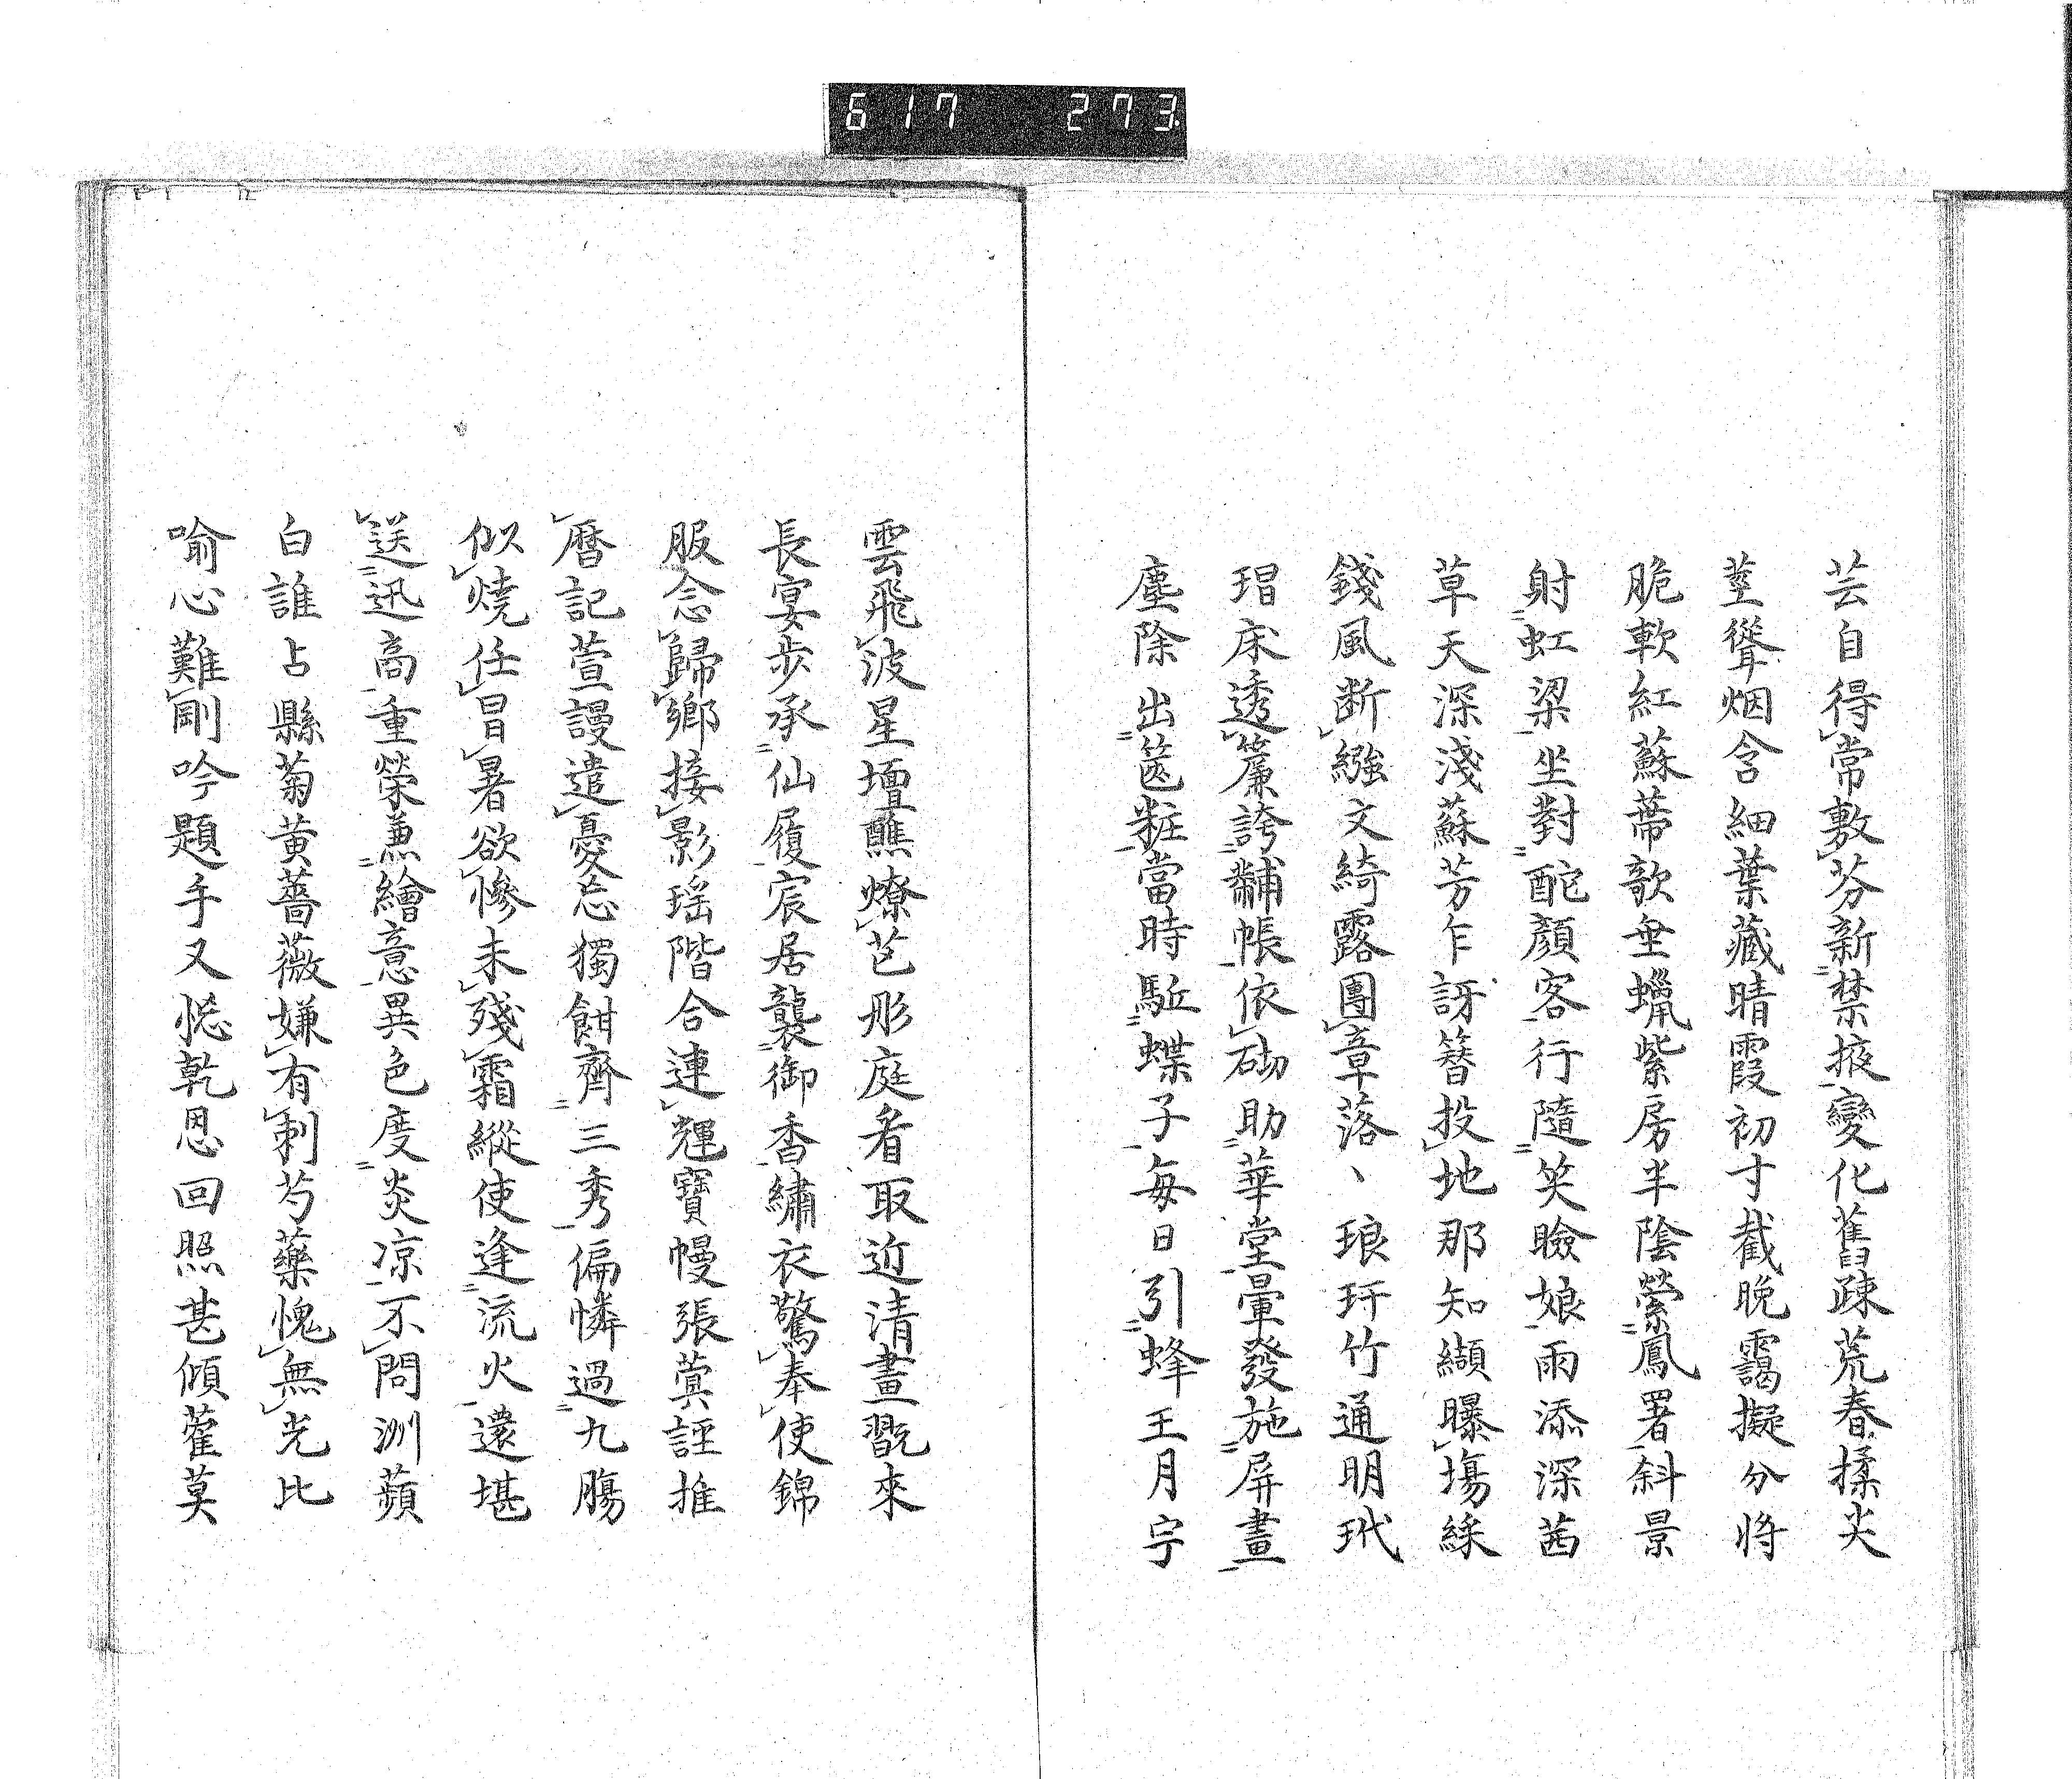 617 273
芸自得常敷芬新禁掖變化舊疎荒春揉尖
莖聳烟含細葉藏晴霞初寸截晚靄擬分将
脆軟紅蘇蔕欹垂蠟紫房半陰縈鳳署斜景
射虹梁坐對酡顏客行隨笑瞼娘雨添深茜
草天深淺蘇芳乍訝簪投地那知纈曝塲綵
錢風断繦文綺露團章落丶琅玕竹通明玳
瑁床透簾誇黼帳依砌助華堂暈發施屏畫
塵除出篋粧當時駈蝶子每日引蜂王月宇
雲飛波星壇醮燎芒彤庭看取近清晝翫來
長宴步承仙履宸居襲御香繡衣驚奉使錦
服念歸鄉接影瑶階合連輝寶幔張蓂誣推
曆記萱謾遣憂忘獨餌齊三秀偏憐過九膓
似燒任冒暑欲惨未殘霜縱使逢流火還堪
送迅商重榮兼繪意異色度炎凉不問洲蘋
白誰占縣菊黄薔薇嫌有刺芍藥愧無光比
喻心難剛吟題手又怳乾恩回照甚傾藿莫